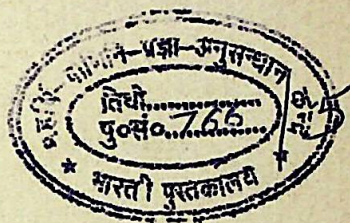 महर्षि-पाणिनि-प्रज्ञा-अनुसन्धान
तिथौ..................
पु०सं०..766......
* भारती पुस्तकालय *